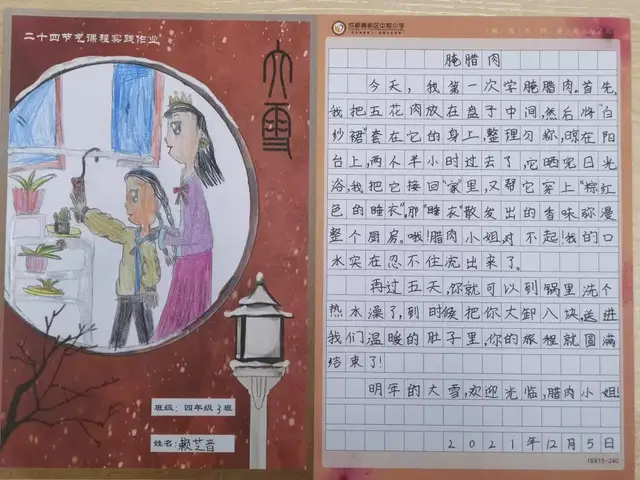 二十四节气课程实践作业
大雪
班级：四年级3班
姓名：
成都高新区中和小学
腌腊肉
今天，我第一次学腌腊肉。首先，
我把五花肉放在盘子中间，然后将“白
纱裙”套在它的身上，整理匀称，晾在阳
台上，两个半小时过去了，它晒完日光
浴，我把它接回“家”里，又帮它穿上“棕红
色的睡衣”。那“睡衣”散发出的香味弥漫
整个厨房。哦！腊肉小姐，对不起！我的口
水实在忍不住流出来了。
再过五天，你就可以到锅里洗个
热水澡了，到时候把你大卸八块，送进
我们温暖的肚子里，你的旅程就圆满
结束了！
明年的大雪，欢迎光临，腊肉小姐！
2021年12月5日
16X15=240